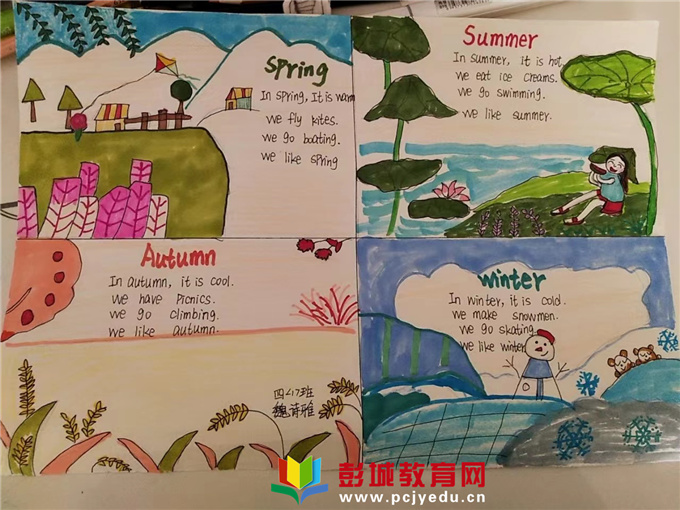 Spring
In spring, It is warm
we fly kites.
we go boating.
we like spring
Summer
In summer, it is hot,
we eat ice creams.
we go swimming.
we like summer.
Autumn
In autumn, it is cool.
we have picnics.
we go climbing.
we like autumn.
四<1>班
魏诗雅
winter
In winter, it is cold.
we make snowmen.
we go skating.
we like winter
彭城教育网
www.pcjyedu.cn